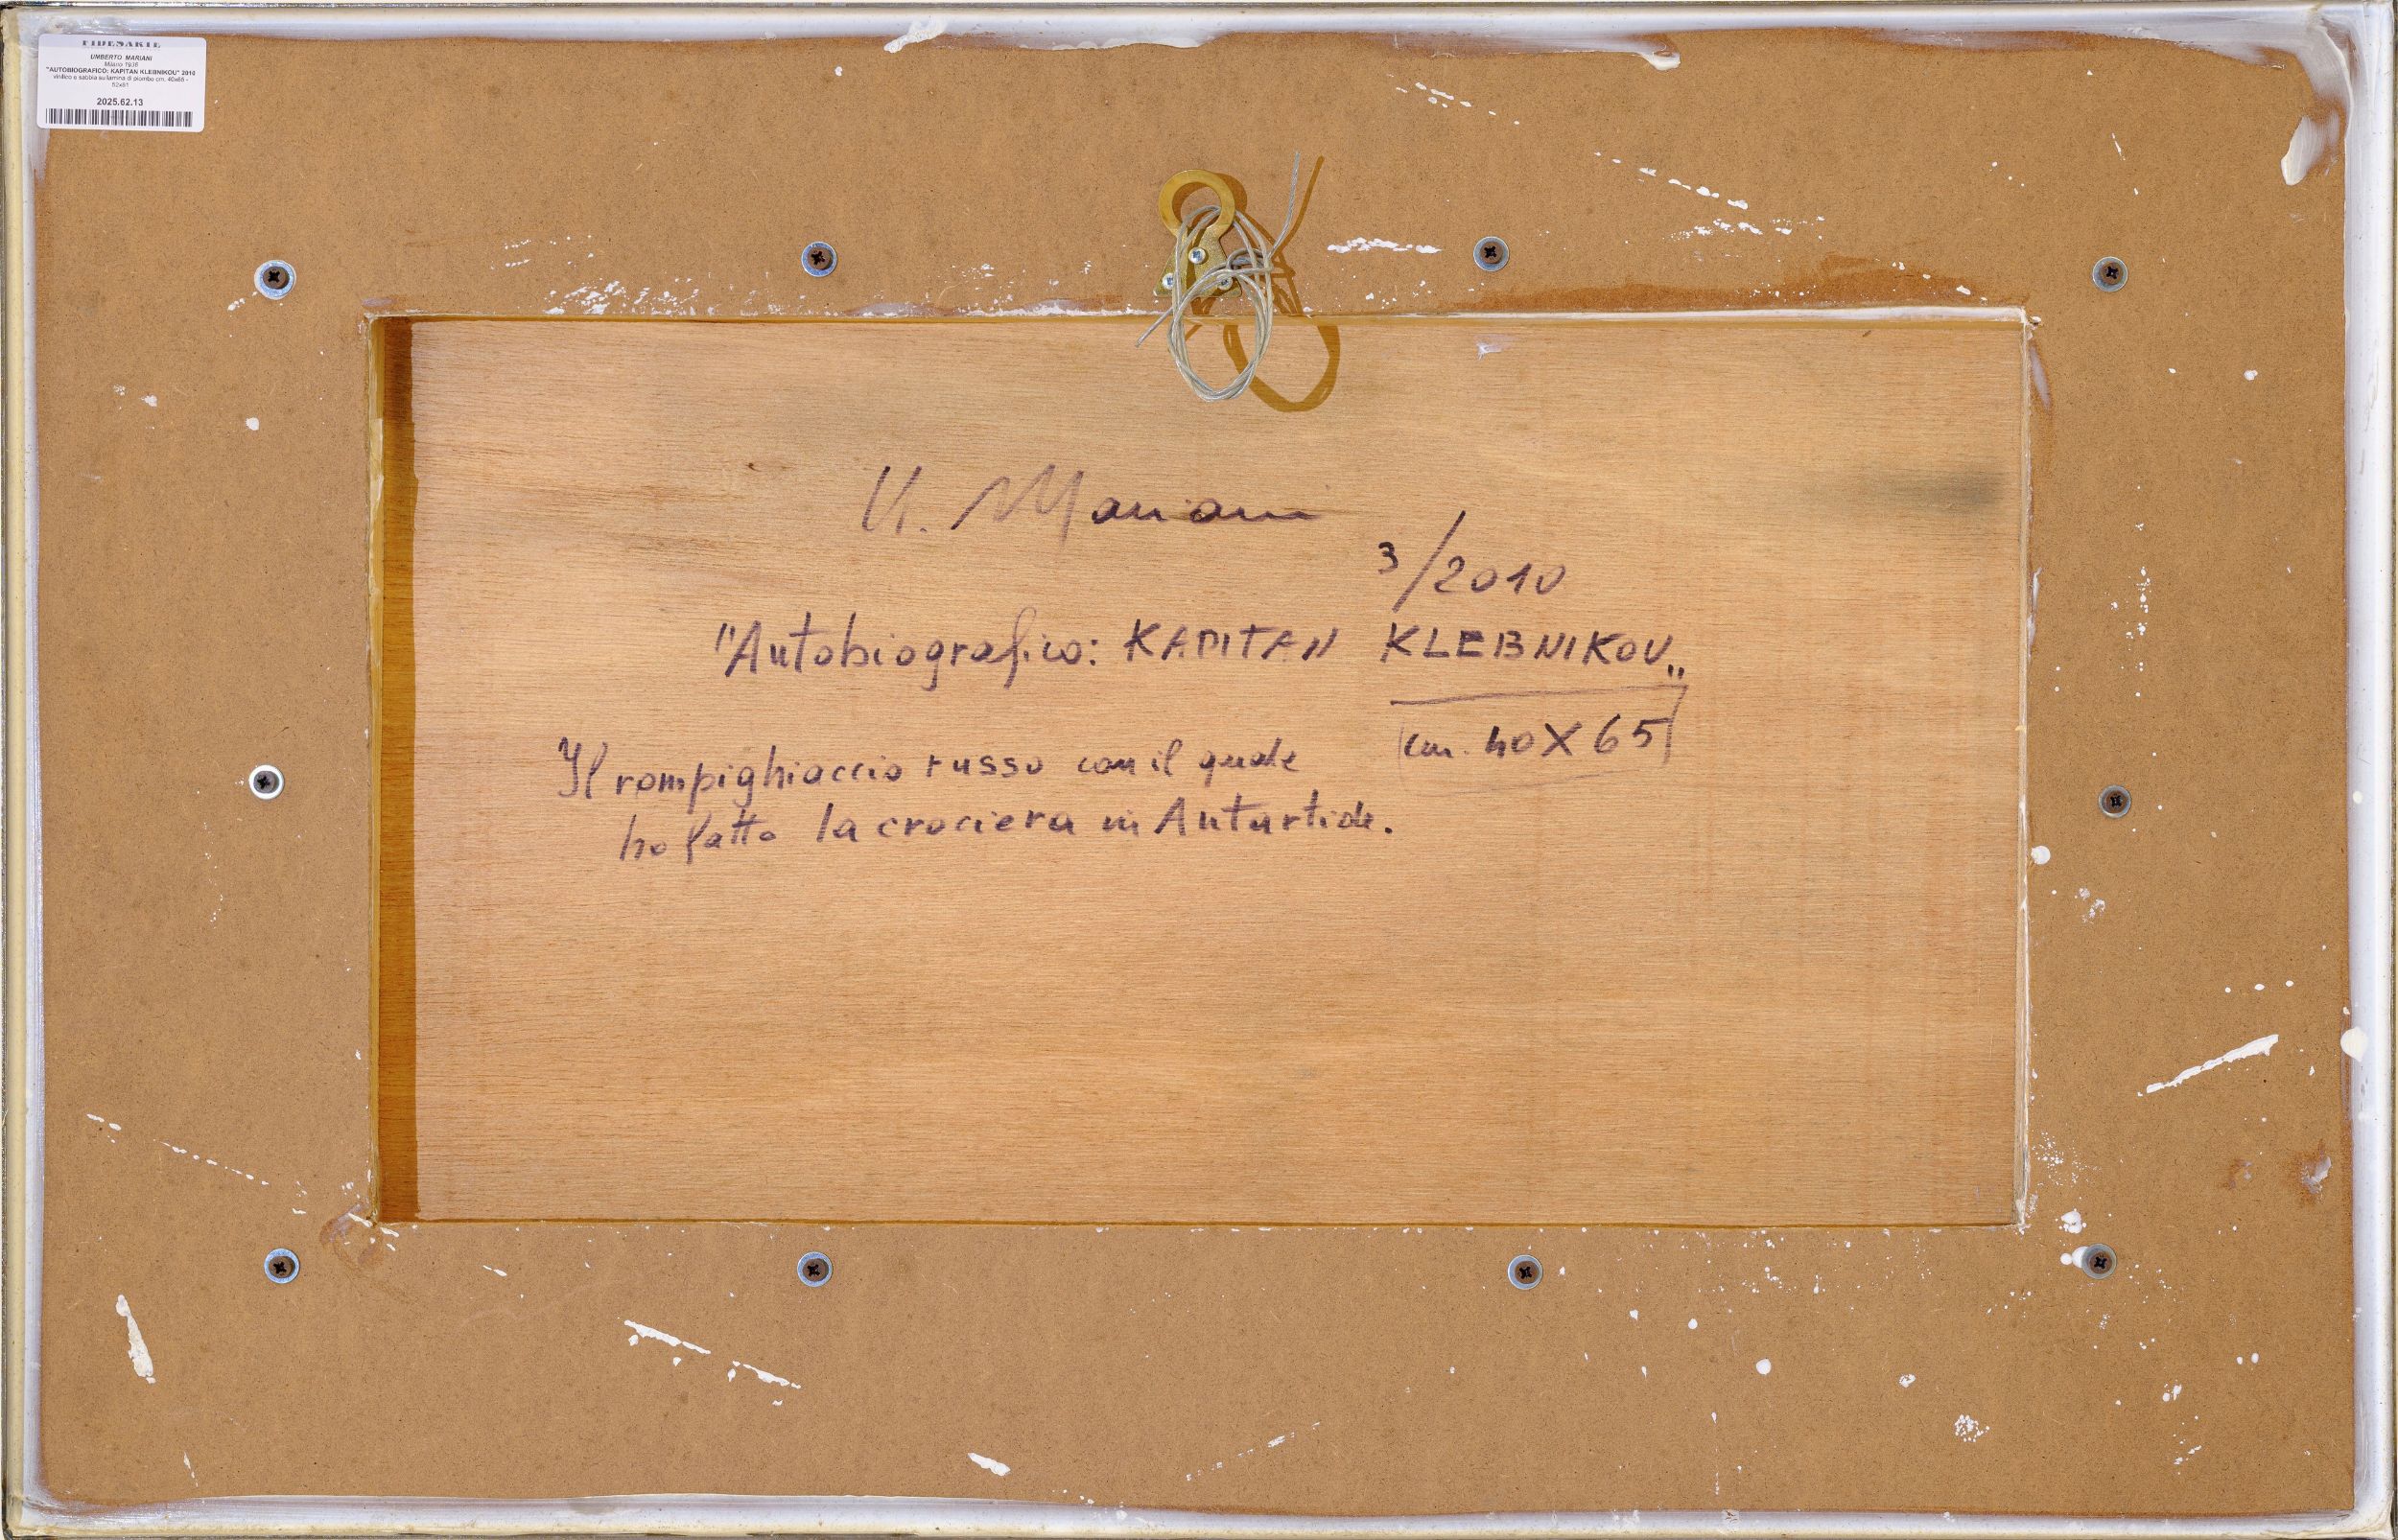 FIDESARTE
UMBERTO MARIANI
Milano 1936
"AUTOBIOGRAFICO: KAPITAN KLEBNIKOU" 2010
vinilico e sabbia su lamina di piombo cm. 40x65 -
52x81
2025.62.13
U. Mariani
3/2010
"Autobiografico: KAPITAN KLEBNIKOV"
cm. 40X65
Il rompighiaccio russo con il quale
ho fatto la crociera in Antartide.